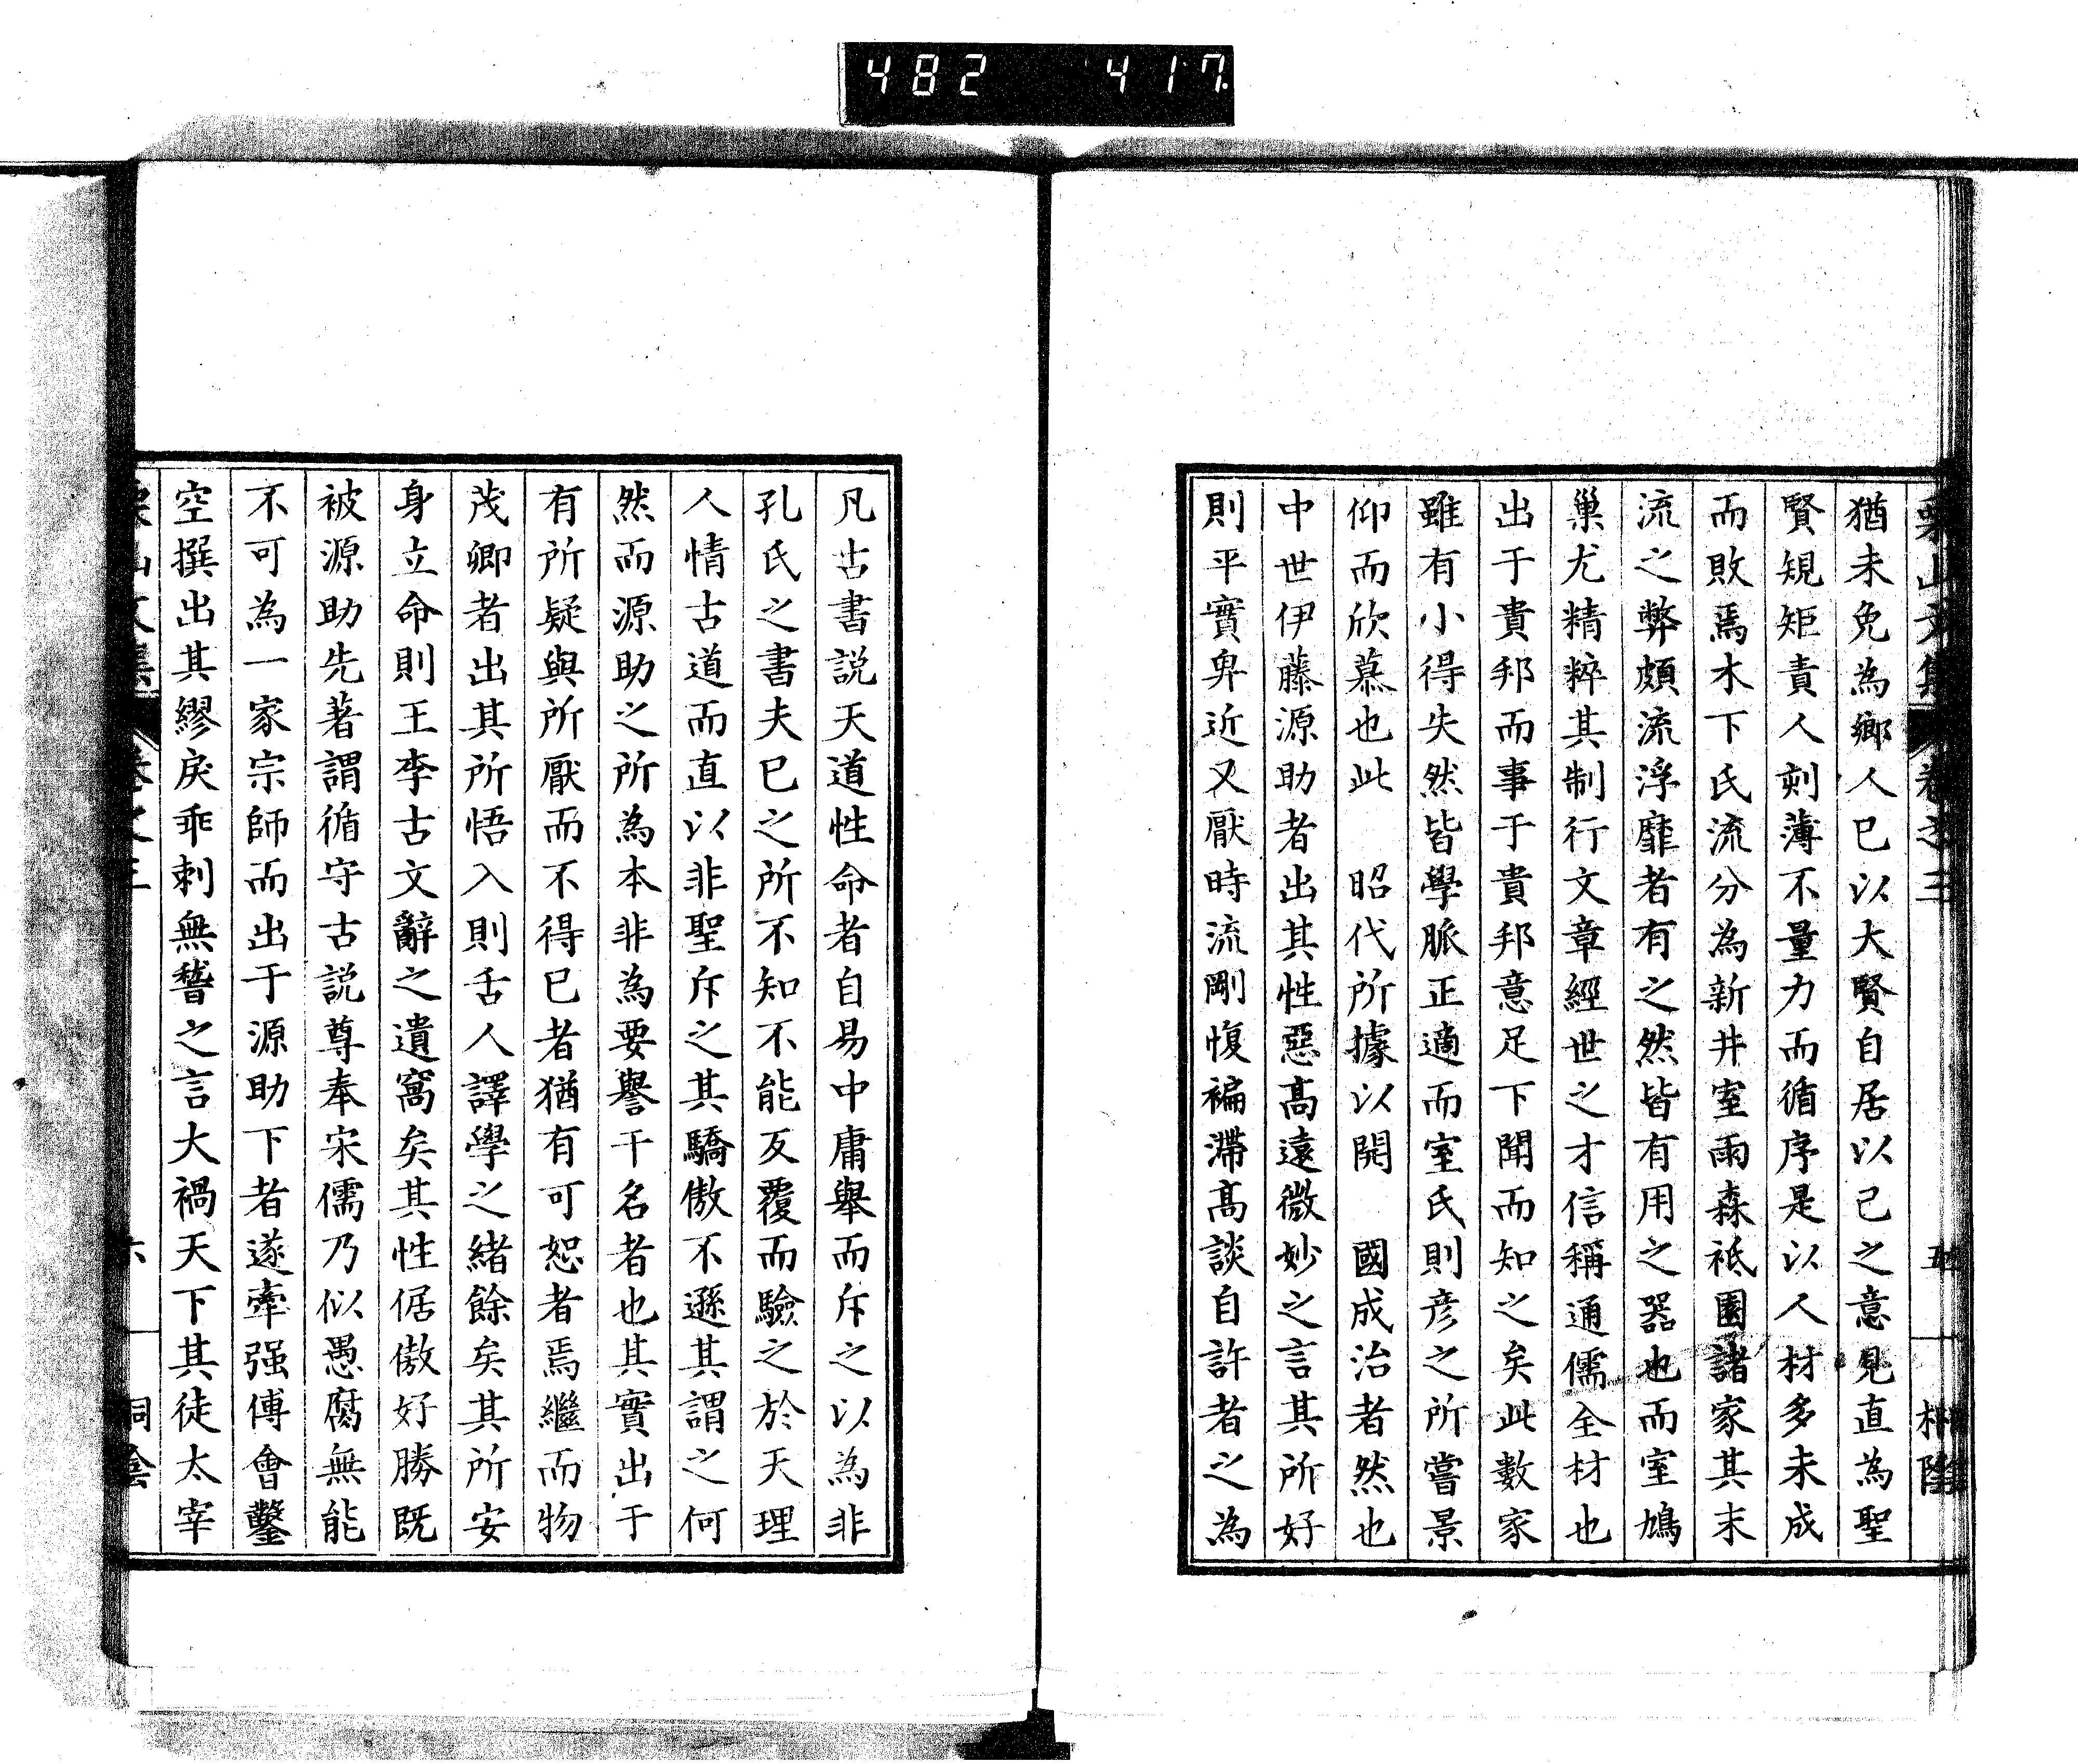 482 417
栗山文集 卷之三 五 桐陰
猶未免為鄉人已以大賢自居以己之意見直為聖
賢規矩責人刻薄不量力而循序是以人材多未成
而敗焉木下氏流分為新井室雨森祗園諸家其末
流之弊頗流浮靡者有之然皆有用之器也而室鳩
巢尤精粹其制行文章經世之才信稱通儒全材也
出于貴邦而事于貴邦意足下聞而知之矣此數家
雖有小得失然皆學脈正適而室氏則彥之所嘗景
仰而欣慕也此　昭代所據以開　國成治者然也
中世伊藤源助者出其性惡高遠微妙之言其所好
則平實卑近又厭時流剛愎褊滯高談自許者之為
凡古書説天道性命者自易中庸舉而斥之以為非
孔氏之書夫已之所不知不能反覆而驗之於天理
人情古道而直以非聖斥之其驕傲不遜其謂之何
然而源助之所為本非為要譽干名者也其實出于
有所疑與所厭而不得已者猶有可恕者焉繼而物
茂卿者出其所悟入則舌人譯學之緒餘矣其所安
身立命則王李古文辭之遺窩矣其性倨傲好勝既
被源助先著謂循守古説尊奉宋儒乃似愚腐無能
不可為一家宗師而出于源助下者遂牽强傅會鑿
空撰出其繆戾乖剌無稽之言大禍天下其徒太宰
栗山文集 卷之三 六 桐陰